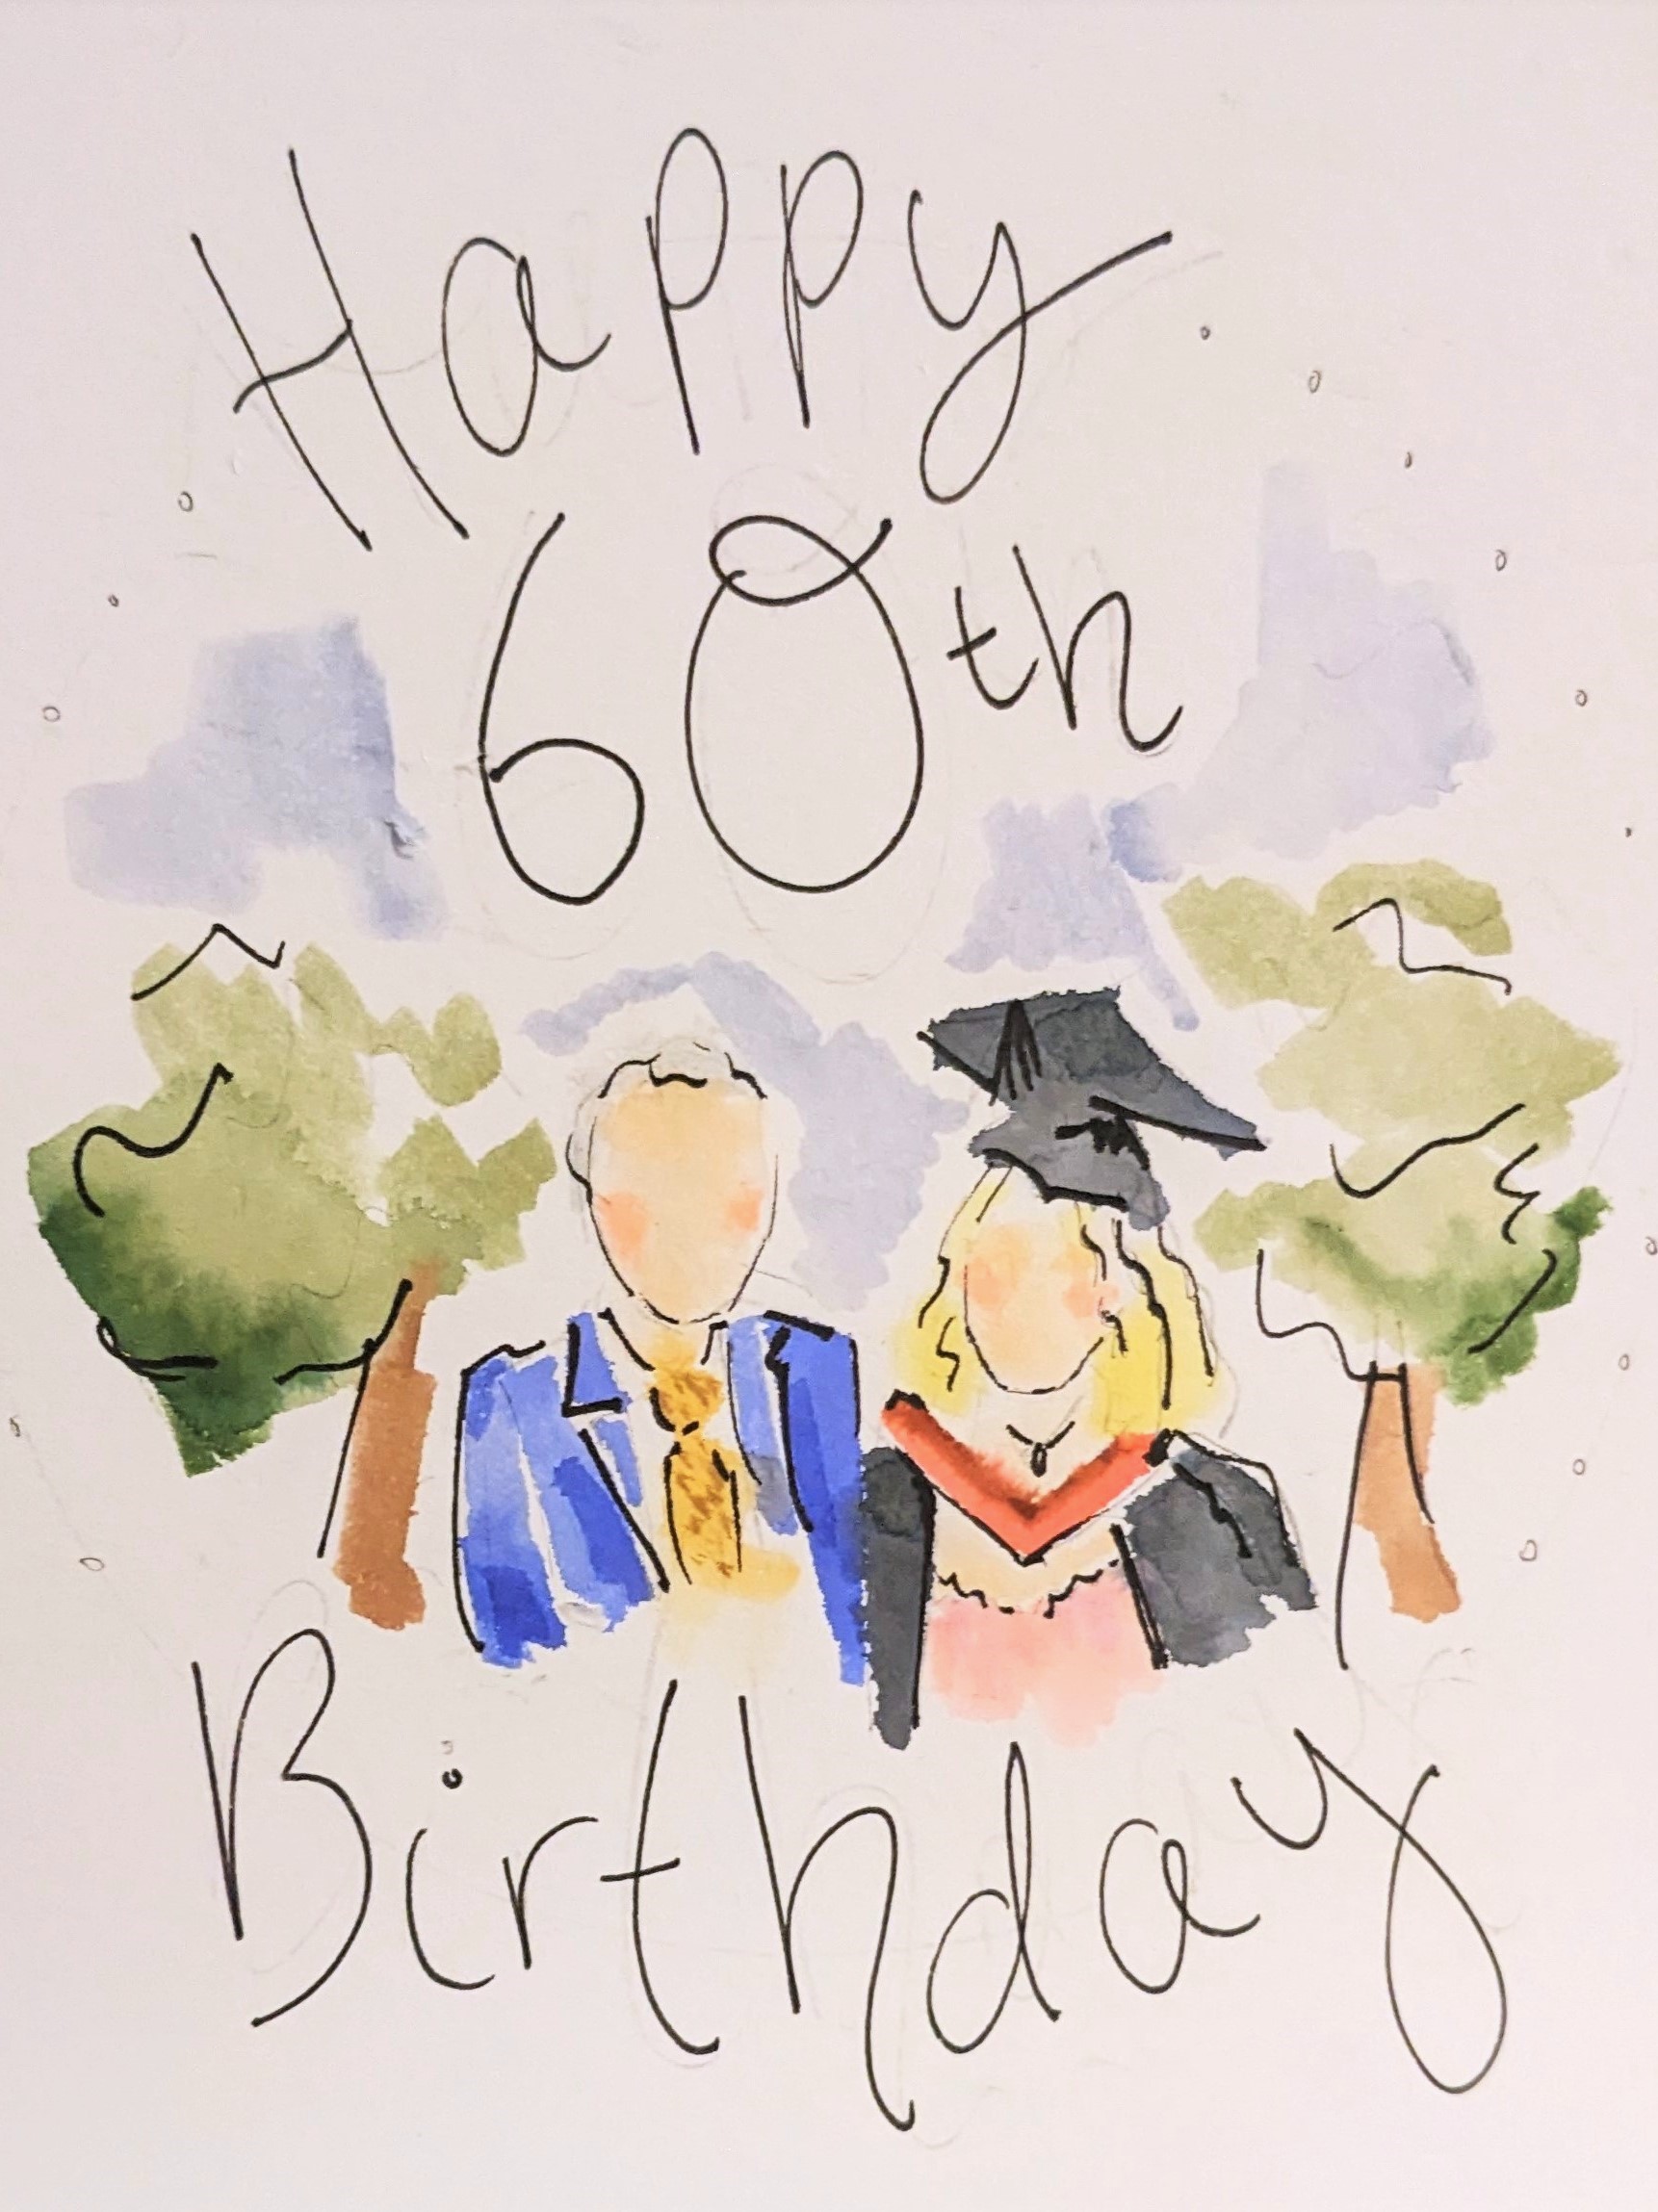 Happy
60th
Birthday